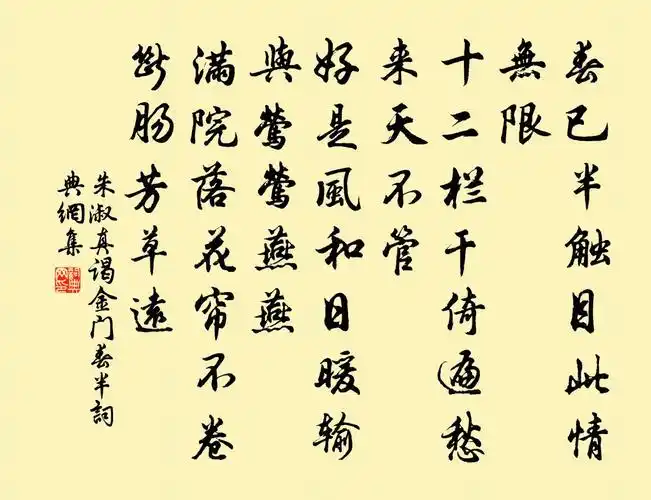 春已半触目此情
無限
十二栏干倚遍愁
来天不管
好是風和日暖输
與莺莺燕燕
满院落花帘不卷
断肠芳草遠
朱淑真谒金门春半詞
典網集